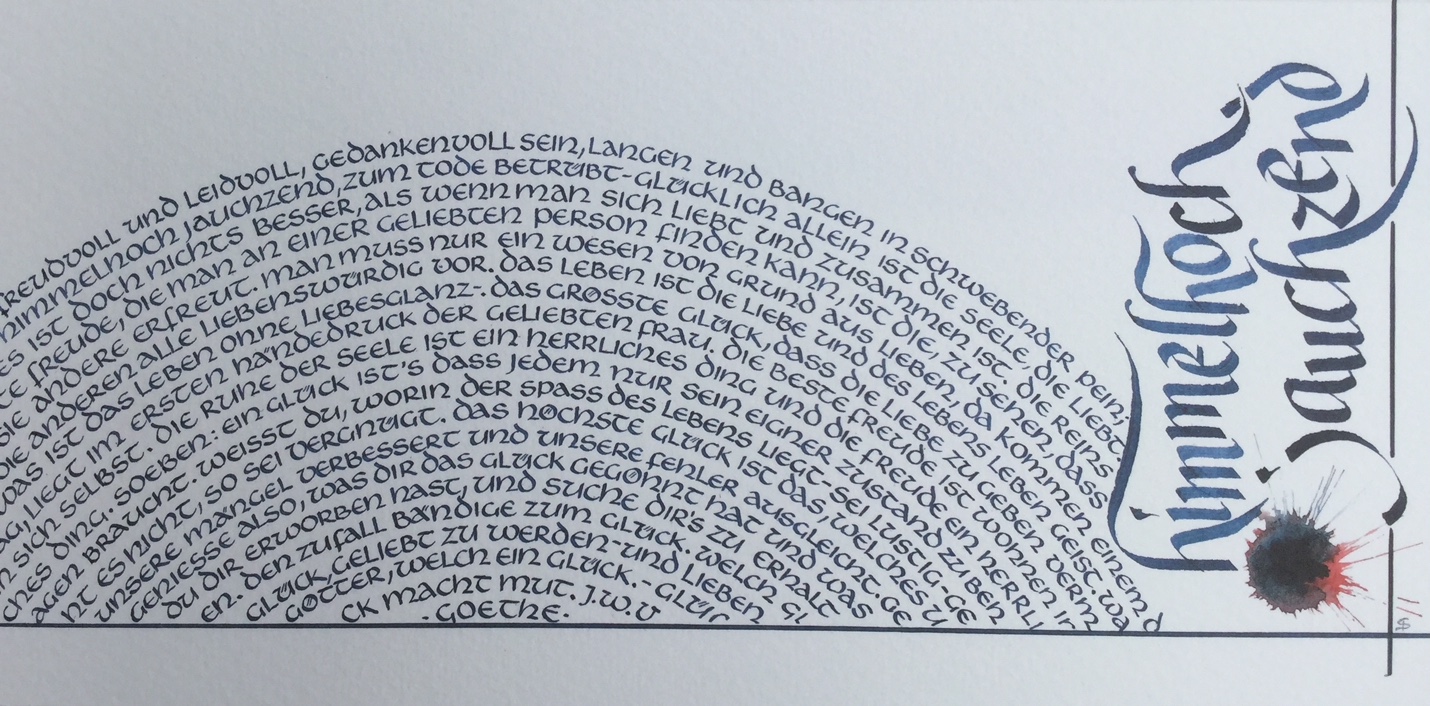 FREUDVOLL UND LEIDVOLL, GEDANKENVOLL SEIN, LANGEN UND BANGEN IN SCHWEBENDER PEIN,
HIMMELHOCH JAUCHZEND, ZUM TODE BETRÜBT-GLÜCKLICH ALLEIN IST DIE SEELE, DIE LIEBT.
ES IST DOCH NICHTS BESSER, ALS WENN MAN SICH LIEBT UND ZUSAMMEN IST. DIE REINS
TE FREUDE, DIE MAN AN EINER GELIEBTEN PERSON FINDEN KANN, IST DIE, ZU SEHEN, DASS
DIE ANDERE ERFREUT. MAN MUSS NUR EIN WESEN VON GRUND AUS LIEBEN, DA KOMMEN EINEM D
DIE ANDEREN ALLE LIEBENSWÜRDIG VOR. DAS LEBEN IST DIE LIEBE UND DES LEBENS LEBEN GEIST. WA
WAS IST DAS LEBEN OHNE LIEBESGLANZ-. DAS GRÖSSTE GLÜCK, DASS DIE LIEBE ZU GEBEN VERM
AG, LIEGT IM ERSTEN HÄNDEDRUCK DER GELIEBTEN FRAU. DIE BESTE FREUDE IST WOHNEN IN
SICH SELBST. DIE RUHE DER SEELE IST EIN HERRLICHES DING UND DIE FREUDE EIN HERRLI
CHES DING. SOEBEN: EIN GLÜCK IST'S DASS JEDEM NUR SEIN EIGNER ZUSTAND ZU BEH
AGEN BRAUCHT. WEISST DU, WORIN DER SPASS DES LEBENS LIEGT- SEI LUSTIG.-GE
HT ES NICHT, SO SEI VERGNÜGT. DAS HÖCHSTE GLÜCK IST DAS, WELCHES U
UNSERE MÄNGEL VERBESSERT UND UNSERE FEHLER AUSGLEICHT. GE
GENIESSE ALSO, WAS DIR DAS GLÜCK GEGÖNNT HAT UND WAS
DU DIR ERWORBEN HAST, UND SUCHE DIR'S ZU ERHALT
EN. DEN ZUFALL BÄNDIGE ZUM GLÜCK. WELCH GL
GLÜCK, GELIEBT ZU WERDEN-UND LIEBEN
GÖTTER, WELCH EIN GLÜCK.- GLÜ
CK MACHT MUT. J.W.V
.GOETHE.
himmelhoch
Jauchzend